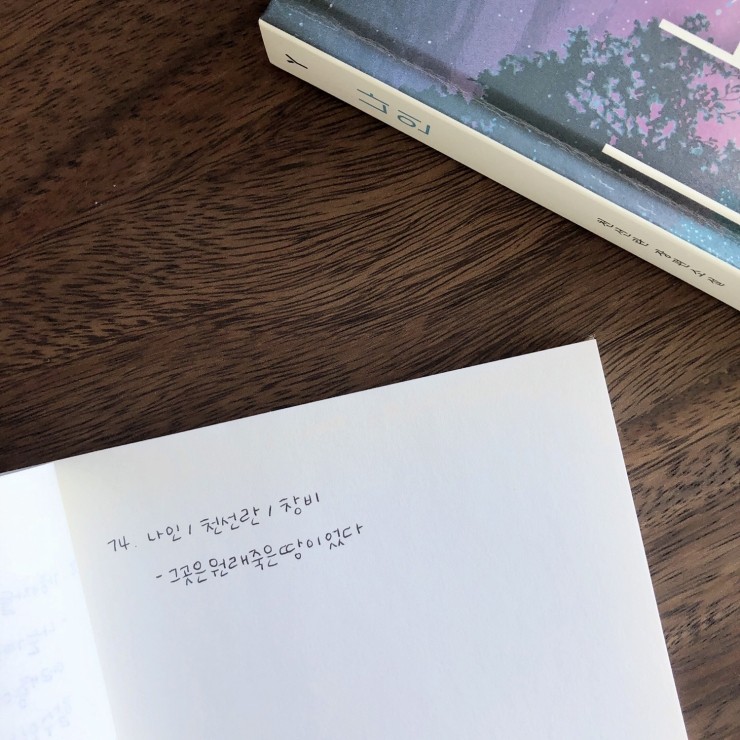 Y
나인
천선란 장편소설
74. 나인 / 천선란 / 창비
- 그곳은 원래 죽은 땅이었다